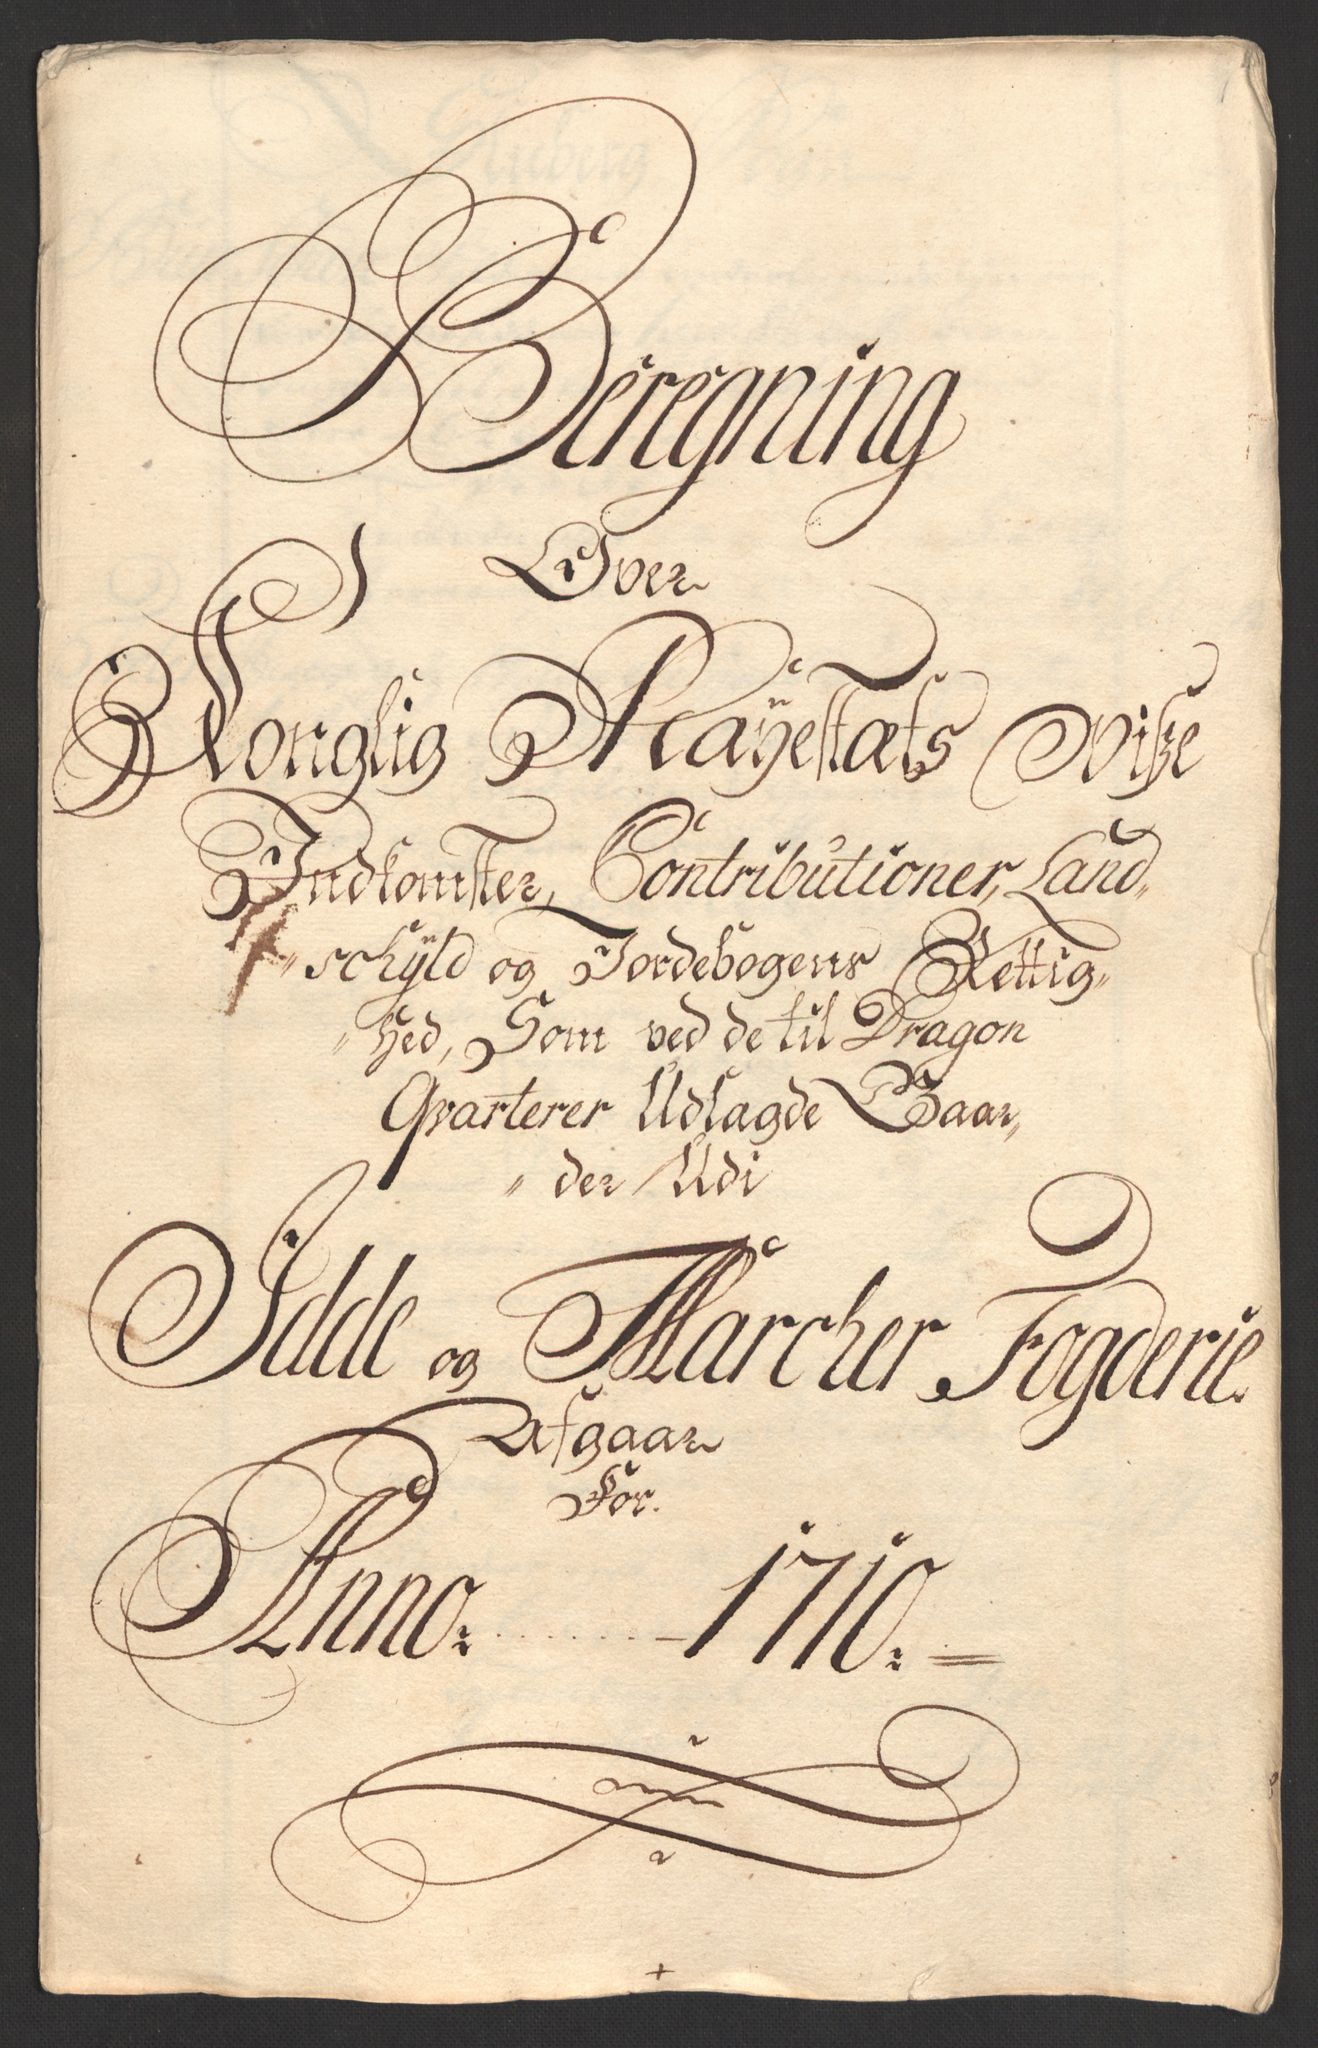 Beregning
Over
Konglig Mayestæts Visse
Indkomster, Contributioner, Land-
schyld og Jordebogens Rettig-
hed, Som ved de til Dragon
Qvarterer Udlagde Gaar-
der Udi
Idde og Marcher Fogderie
Afgaar
For.
Anno. 1710.